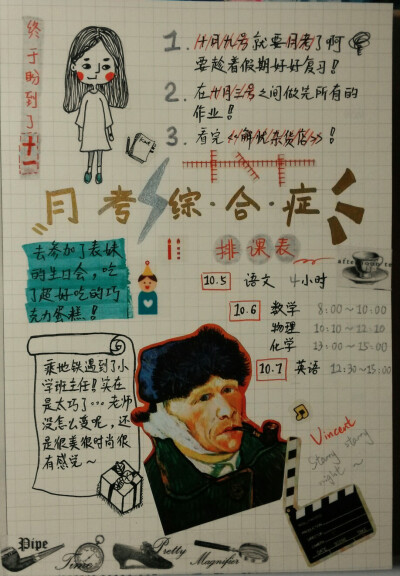 终于盼到了十一
1. 十月九号就要月考了啊
要趁着假期好好复习!
2. 在十月三号之间做完所有的
作业!
3. 看完《解忧杂货店》!
月考综·合·症
去参加了表妹
的生日会,吃
了超好吃的巧
克力蛋糕!
排课表
10.5 语文 4小时
10.6 数学 8:00~10:00
物理 10:10~12:10
化学 13:00~15:00
10.7 英语 12:30~15:00
乘地铁遇到了小
学班主任!实在
是太巧了…老师
没怎么变呢,还
是很美很时尚很
有感觉~
Vincent
Starry starry
night ~
Pipe
Time
Pretty
Magnifier